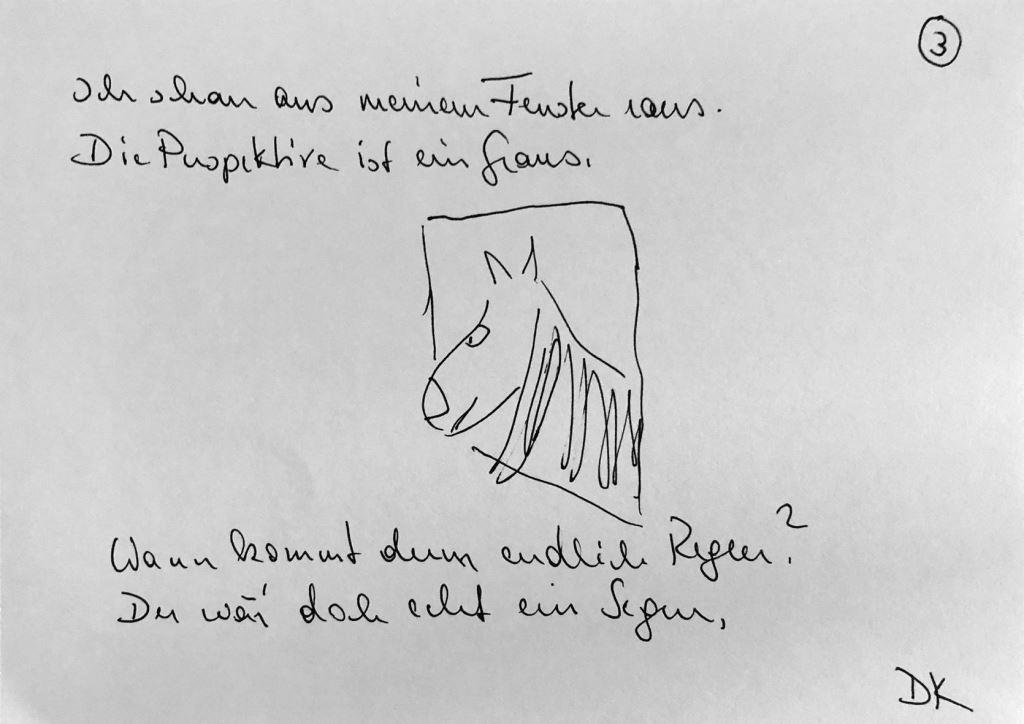 3
Ich schau aus meinem Fenster raus.
Die Perspektive ist ein Graus.
Wann kommt denn endlich Regen?
Der wär' doch echt ein Segen,
DK